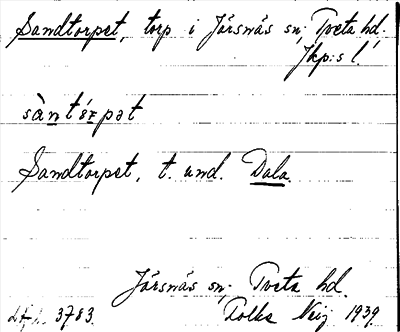 Sandtorpet, torp i Järsnäs sn, Tveta hd.
Jkp:s l.
Sandtorpet, t. und. Dala.
Järsnäs sn. Tveta hd.
3783. Folke Neij 1939.